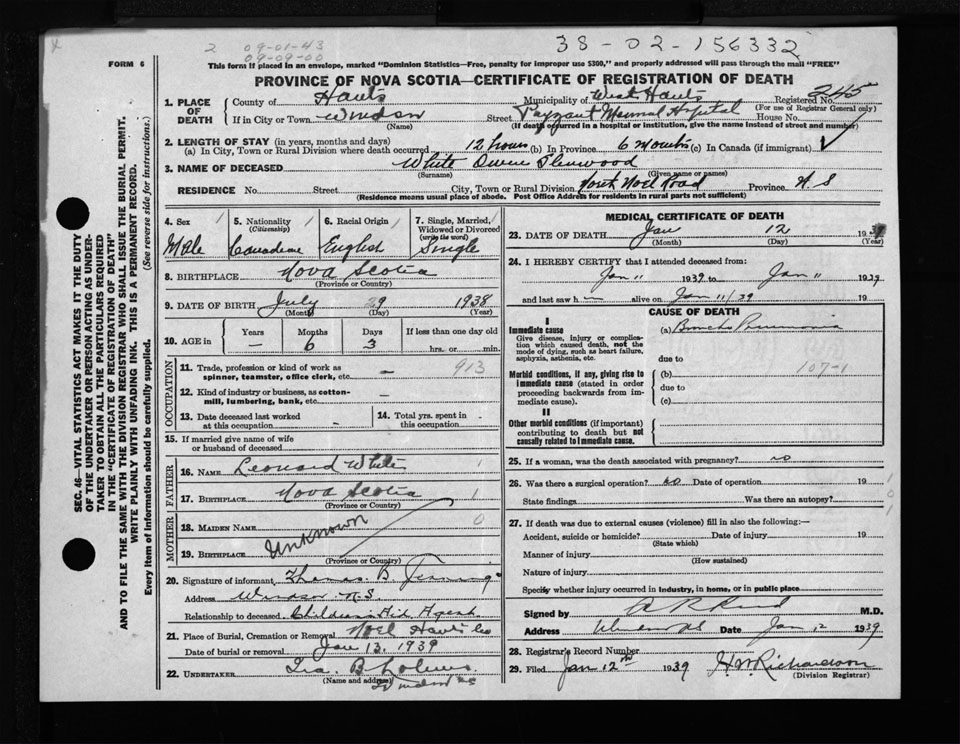 2 09-01-43
09-09-00
38-02-156332
FORM 6
This form if placed in an envelope, marked "Dominion Statistics—Free, penalty for improper use $300," and properly addressed will pass through the mail "FREE"
PROVINCE OF NOVA SCOTIA—CERTIFICATE OF REGISTRATION OF DEATH
1. PLACE OF DEATH
County of Hants Municipality of West Hants Registered No. 245
(For use of Registrar General only)
If in City or Town Windsor Street Payzant Memorial Hospital House No.
(Name) (If death occurred in a hospital or institution, give the name instead of street and number)
2. LENGTH OF STAY (in years, months and days)
(a) In City, Town or Rural Division where death occurred 12 hours (b) In Province 6 Months (c) In Canada (if immigrant)
3. NAME OF DECEASED White Owen Glenwood
(Surname) (Given name or names)
RESIDENCE No. Street City, Town or Rural Division North Noel Road Province N.S
(Residence means usual place of abode. Post Office Address for residents in rural parts not sufficient)
4. Sex Male
5. Nationality (Citizenship) Canadian
6. Racial Origin English
7. Single, Married, Widowed or Divorced (write the word) Single
8. BIRTHPLACE Nova Scotia
(Province or Country)
9. DATE OF BIRTH July 29 1938
(Month) (Day) (Year)
10. AGE in Years — Months 6 Days 3 If less than one day old hrs. or min.
OCCUPATION
11. Trade, profession or kind of work as spinner, teamster, office clerk, etc. — 913
12. Kind of industry or business, as cotton-mill, lumbering, bank, etc.
13. Date deceased last worked at this occupation
14. Total yrs. spent in this occupation
15. If married give name of wife or husband of deceased
FATHER
16. NAME Leonard White
17. BIRTHPLACE Nova Scotia
(Province or Country)
MOTHER
18. MAIDEN NAME
Unknown
19. BIRTHPLACE
(Province or Country)
20. Signature of informant Thomas B.
Address Windsor N.S.
Relationship to deceased Childrens Aid Agent
21. Place of Burial, Cremation or Removal Noel Hants Co
Date of burial or removal Jan 13, 1939
22. UNDERTAKER Ira B
(Name and address) Windsor NS
MEDICAL CERTIFICATE OF DEATH
23. DATE OF DEATH Jan 12 1939
(Month) (Day) (Year)
24. I HEREBY CERTIFY that I attended deceased from:
Jan 11 1939 to Jan 11 1939
and last saw h im alive on Jan 11/39 19
CAUSE OF DEATH
I
Immediate cause (a) Broncho Pneumonia
Give disease, injury or complication which caused death, not the mode of dying, such as heart failure, asphyxia, asthenia, etc.
due to
Morbid conditions, if any, giving rise to immediate cause (stated in order proceeding backwards from immediate cause).
(b) 107-1
due to
(c)
II
Other morbid conditions (if important) contributing to death but not causally related to immediate cause.
25. If a woman, was the death associated with pregnancy? no
26. Was there a surgical operation? no Date of operation 19
State findings Was there an autopsy?
27. If death was due to external causes (violence) fill in also the following:—
Accident, suicide or homicide? Date of injury 19
(State which)
Manner of injury
(How sustained)
Nature of injury
Specify whether injury occurred in industry, in home, or in public place
Signed by M.D.
Address Windsor NS Date Jan 12 1939
28. Registrar's Record Number
29. Filed Jan 12th 1939 H.W. Richardson
(Division Registrar)
SEC. 46—VITAL STATISTICS ACT MAKES IT THE DUTY
OF THE UNDERTAKER OR PERSON ACTING AS UNDER-
TAKER TO OBTAIN ALL THE PARTICULARS REQUIRED
IN THE "CERTIFICATE OF REGISTRATION OF DEATH"
AND TO FILE THE SAME WITH THE DIVISION REGISTRAR WHO SHALL ISSUE THE BURIAL PERMIT.
WRITE PLAINLY WITH UNFADING INK. THIS IS A PERMANENT RECORD.
Every item of information should be carefully supplied. (See reverse side for instructions.)